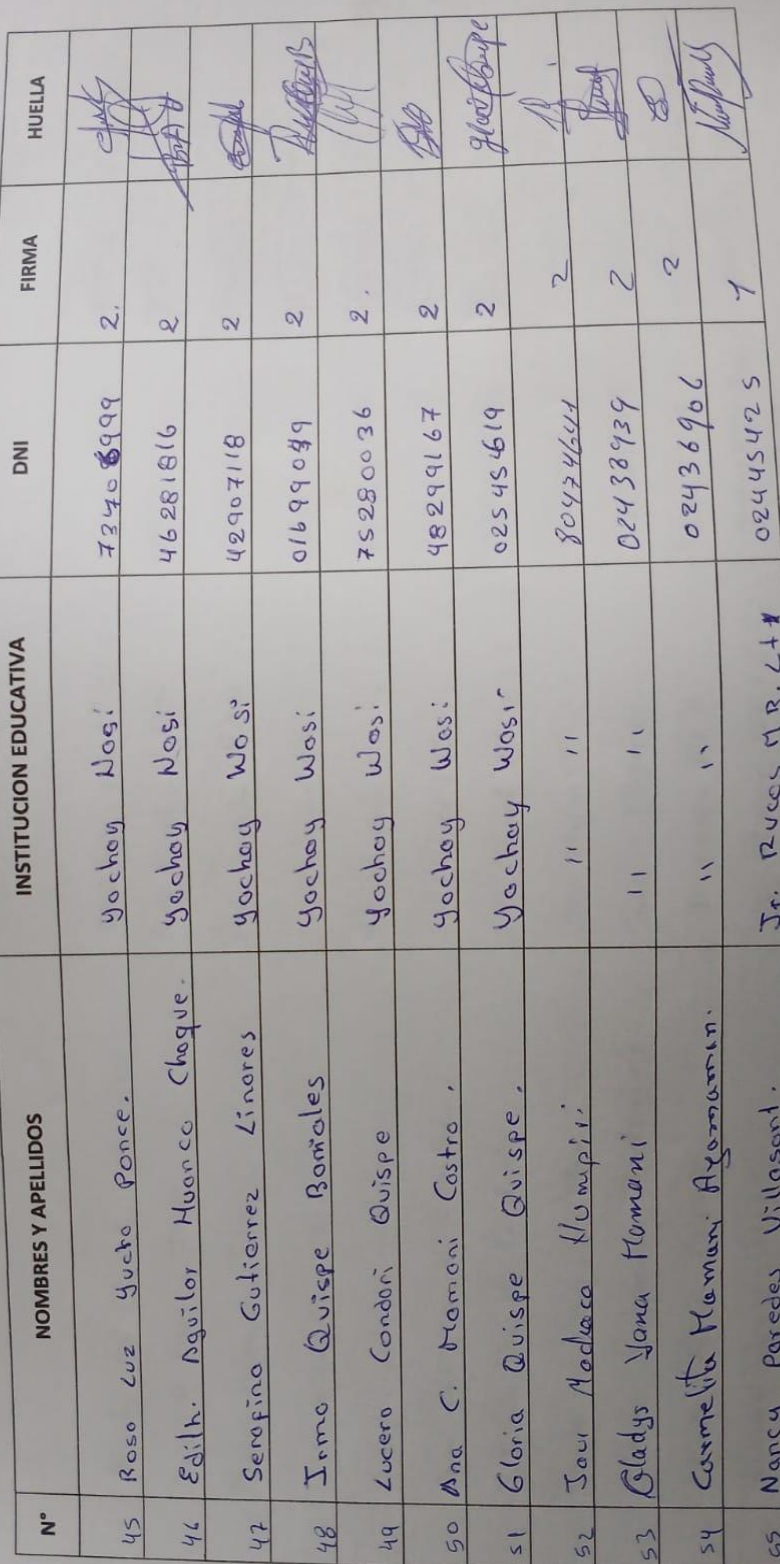 N° NOMBRES Y APELLIDOS INSTITUCION EDUCATIVA DNI FIRMA HUELLA
45 Rosa Luz Yucra Ponce. Yachay Wasi 73708999 2.
46 Edith. Aguilar Huanca Choque. Yachay Wasi 46281816 2
47 Serafina Gutierrez Linares Yachay Wasi 42907118 2
48 Irma Quispe Barriales Yachay Wasi 01699049 2
49 Lucero Condori Quispe Yachay Wasi 75280036 2.
50 Ana C. Mamani Castro. Yachay Wasi 48299167 2
51 Gloria Quispe Quispe. Yachay Wasi 02545619 2
52 Machaca Humpiri " " 80474641 2
53 Gladys Yana Mamani " " 02438939 2
54 Carmelita Mamani " " 02436906 2
55 Nancy Paredes Villasant. 02445425 1